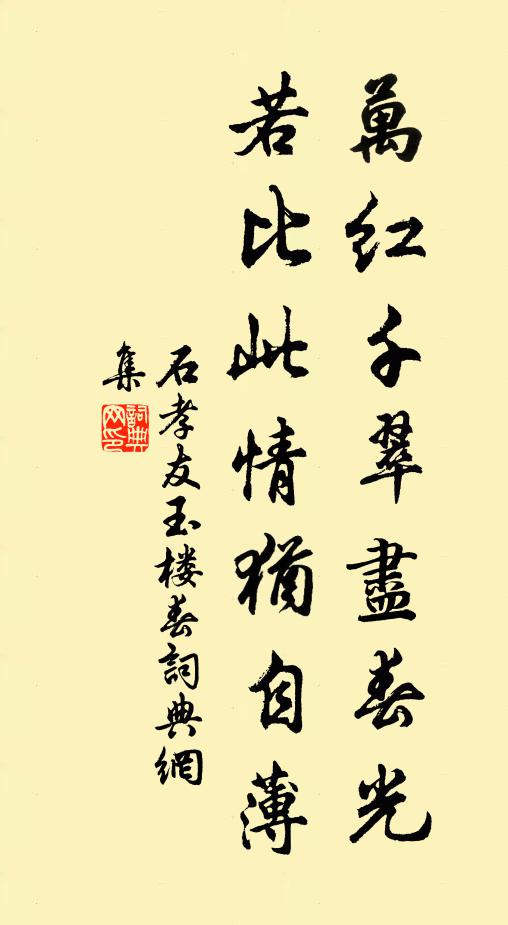 萬紅千翠盡春光
若比此情猶自薄
石孝友玉楼春詞典網
集
詞典網印